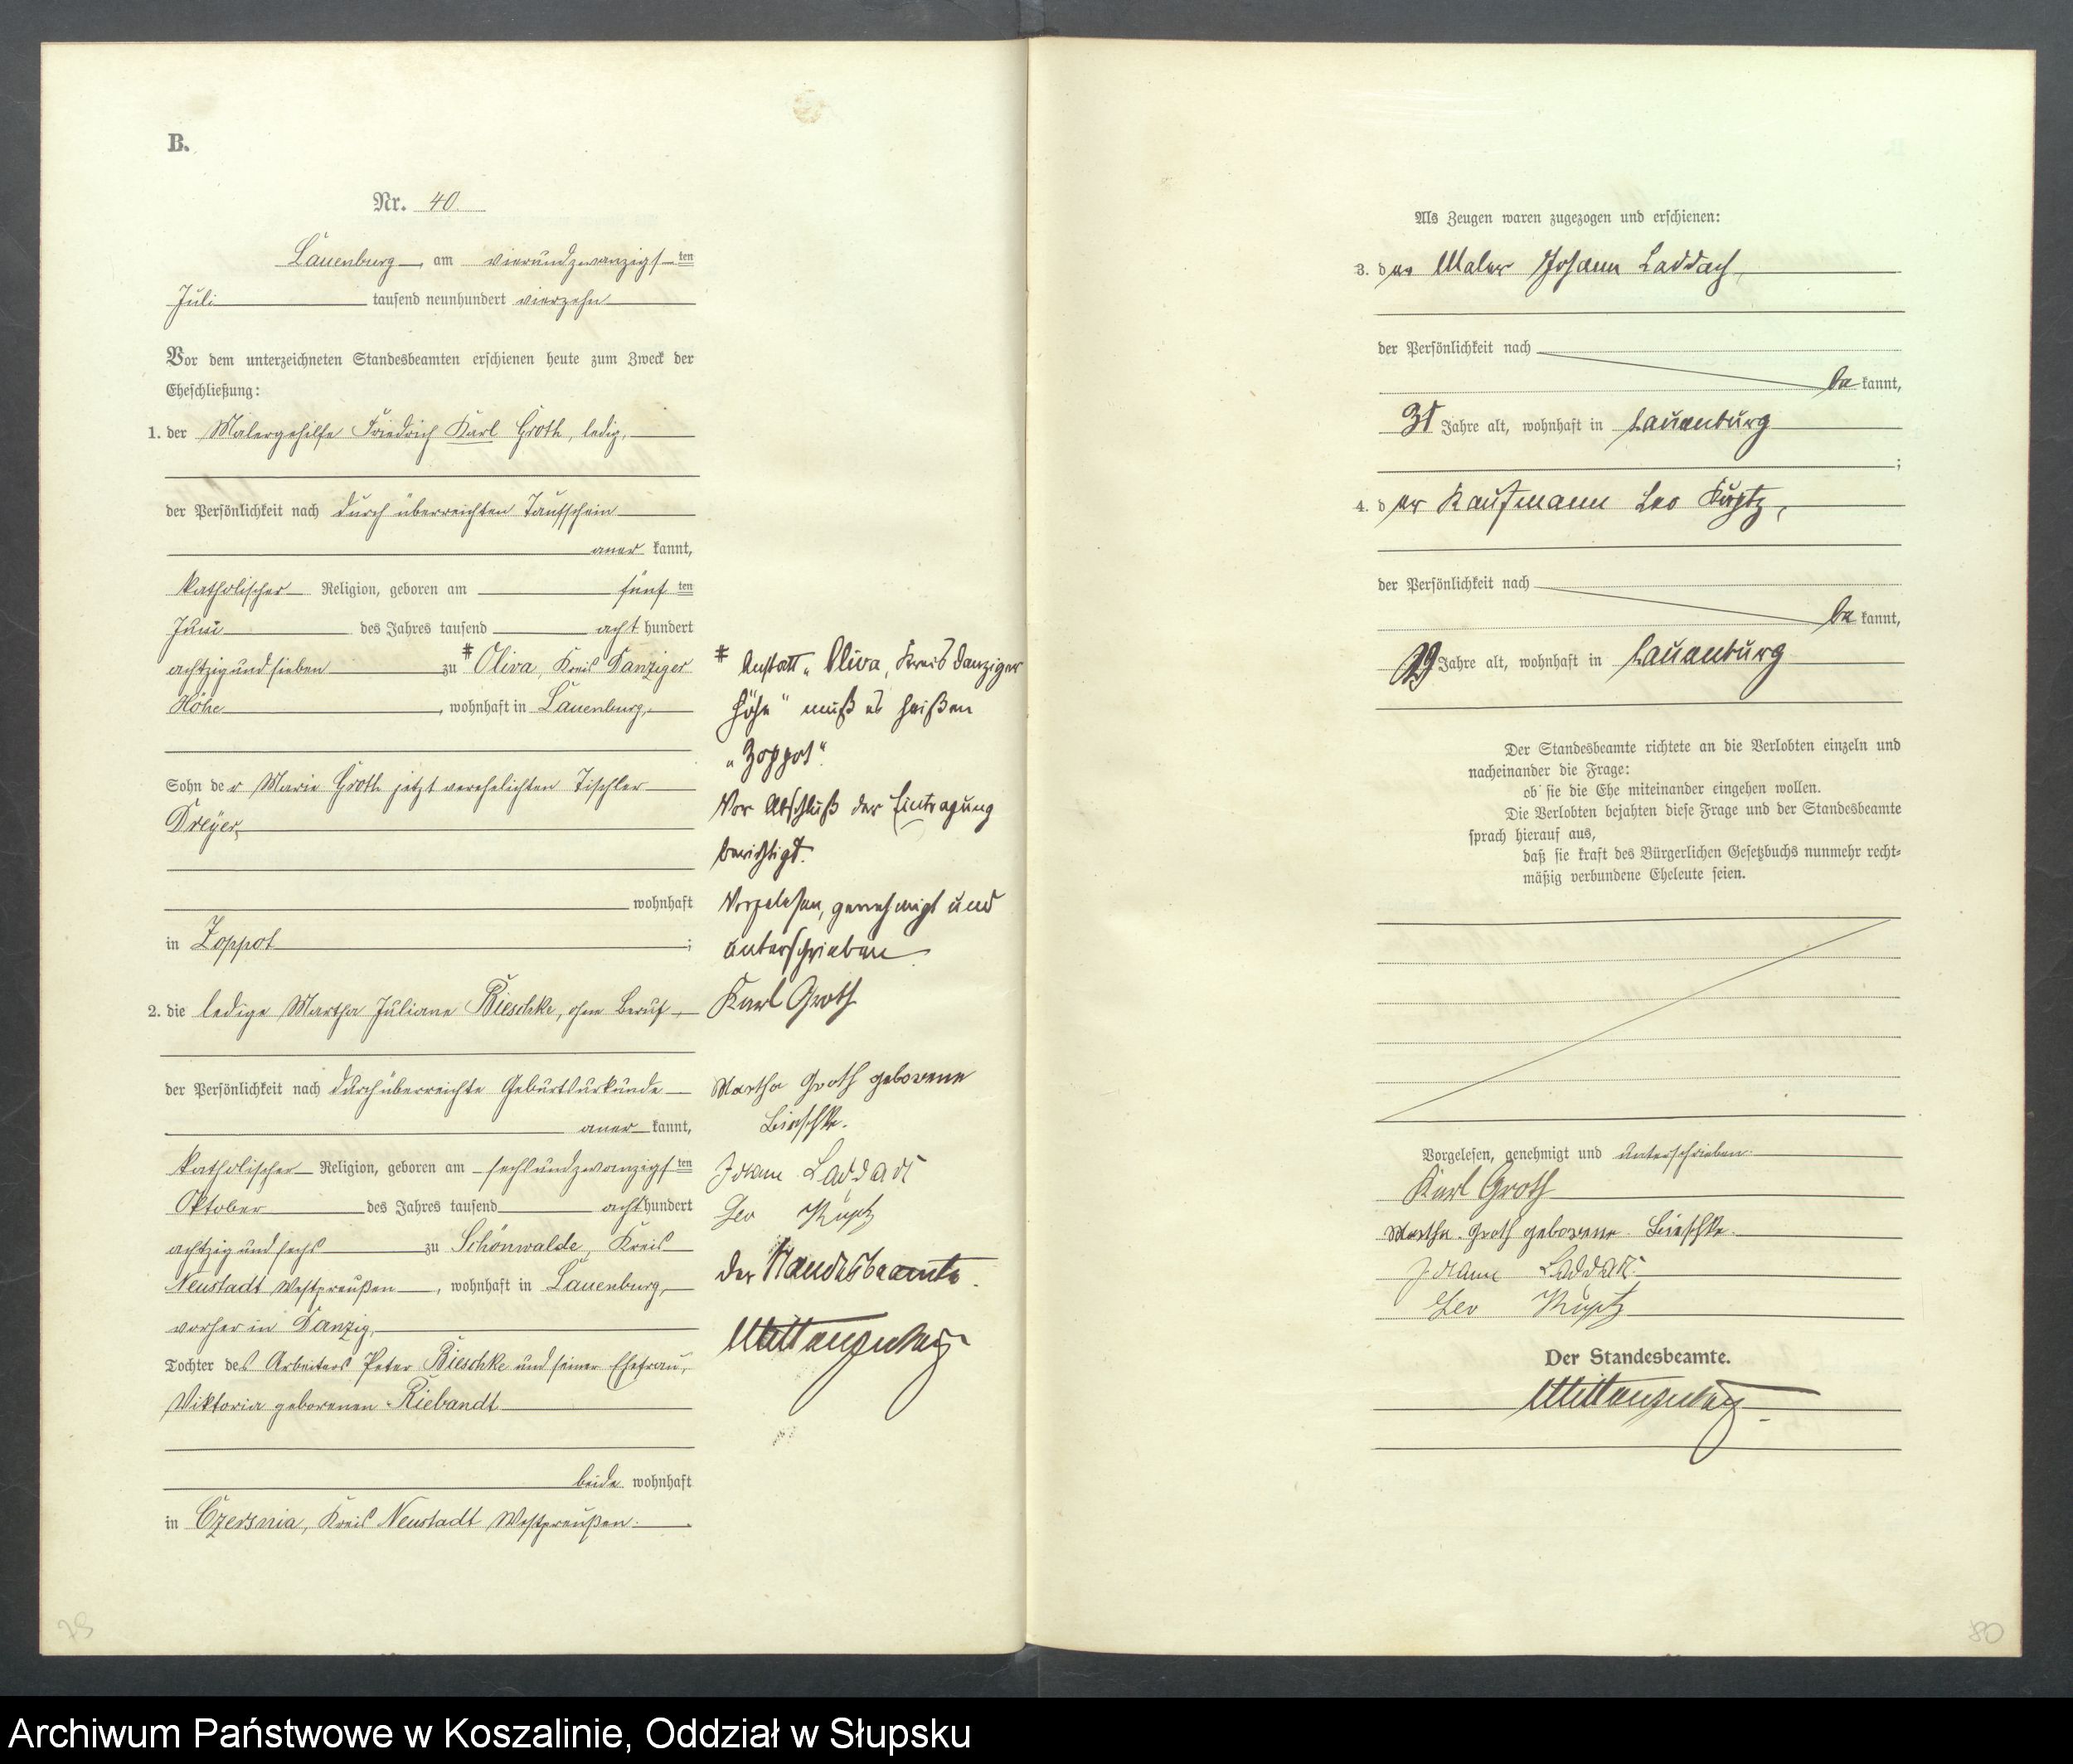 B.
Nr. 40.
Lauenburg, am vierundzwanzigsten
Juli tausend neunhundert vierzehn
Vor dem unterzeichneten Standesbeamten erschienen heute zum Zweck der
Eheschließung:
1. der Malergehilfe Friedrich Karl Groth, ledig,
der Persönlichkeit nach durch überreichten Taufschein
aner kannt,
katholischer Religion, geboren am fünf ten
Juni des Jahres tausend acht hundert
achtzig und sieben zu * Oliva, Kreis Danziger
Höhe, wohnhaft in Lauenburg,
Sohn der Marie Groth jetzt verehelichten Tischler
Dreyer,
wohnhaft
in Zoppot ;
2. die ledige Martha Juliane Bieschke, ohne Beruf,
der Persönlichkeit nach durch überreichte Geburtsurkunde
aner kannt,
katholischer Religion, geboren am sechsundzwanzigsten
Oktober des Jahres tausend acht hundert
achtzig und sechs zu Schönwalde, Kreis
Neustadt Westpreußen, wohnhaft in Lauenburg,
vorher in Danzig,
Tochter des Arbeiters Peter Bieschke und seiner Ehefrau,
Viktoria geborenen Riebandt
beide wohnhaft
in Czersnia, Kreis Neustadt Westpreußen.
* Anstatt „Oliva, Kreis Danziger
Höhe“ muß es heißen
„Zoppot“.
Vor Abschluß der Eintragung
berichtigt.
Vorgelesen, genehmigt und
unterschrieben
Karl Groth
Martha Groth geborene
Bieschke.
Johann Laddach
Leo
Der Standesbeamte.
79
Als Zeugen waren zugezogen und erschienen:
3. der Maler Johann Laddach,
der Persönlichkeit nach
be kannt,
31 Jahre alt, wohnhaft in Lauenburg
;
4. der Kaufmann Leo
der Persönlichkeit nach
be kannt,
Jahre alt, wohnhaft in Lauenburg
Der Standesbeamte richtete an die Verlobten einzeln und
nacheinander die Frage:
ob sie die Ehe miteinander eingehen wollen.
Die Verlobten bejahten diese Frage und der Standesbeamte
sprach hierauf aus,
daß sie kraft des Bürgerlichen Gesetzbuchs nunmehr recht-
mäßig verbundene Eheleute seien.
Vorgelesen, genehmigt und unterschrieben.
Karl Groth
Martha Groth geborene Bieschke.
Johann Laddach
Leo
Der Standesbeamte.
80
Archiwum Państwowe w Koszalinie, Oddział w Słupsku